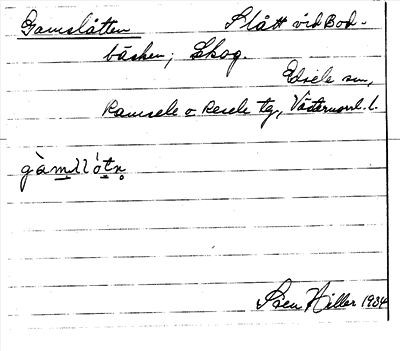 Gamslåtten Slått vid Bod-
bäcken; Skog.
Edsele sn,
Ramsele o Resele tg, Västernorrl. l.
gàmslótn̥
Hiller 1934